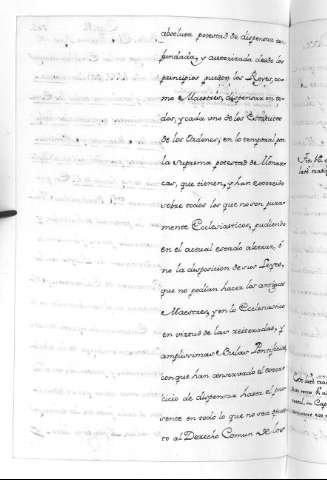 absoluta potestad de dispensar
fundada, y autorizada desde los
principios pueden los Reyes, co
mo Maestres, dispensar en to
dos, y cada uno de los Estatutos
de los Ordenes; en lo temporal por
la suprema potestad de Monar
cas, que tienen, y han exercido
sobre todos los que no son pura
mente Eclesiasticos, pudiendo
en el actual estado alterar, ó
no la disposicion de sus Leyes,
que no podian hacer los antiguos
Maestres; y en lo Eclesiastico
en virtud de las reiteradas, y
amplisimas Bulas Pontificias,
con que han conservado el exer
cicio de dispensar hasta el pre
sente en todo lo que no sea
to al Derecho Comun de los